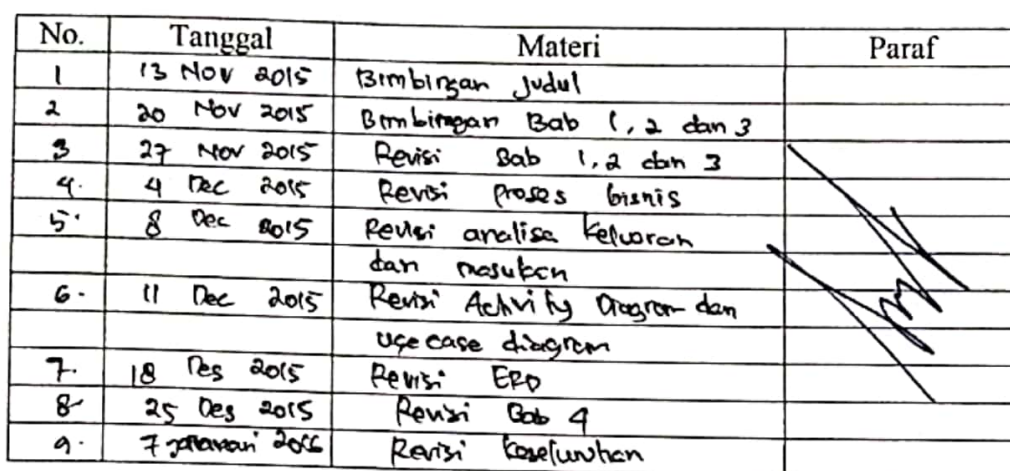 No. Tanggal Materi Paraf
1 13 Nov 2015 Bimbingan Judul
2 20 Nov 2015 Bimbingan Bab 1, 2 dan 3
3 27 Nov 2015 Revisi Bab 1, 2 dan 3
4. 4 Dec 2015 Revisi Proses bisnis
5. 8 Dec 2015 Revisi analisa Keluaran
dan masukan
6. 11 Dec 2015 Revisi Activity Diagram dan
use case diagram
7. 18 Des 2015 Revisi ERD
8. 25 Des 2015 Revisi Bab 4
9. 7 Januari 2016 Revisi Keseluruhan